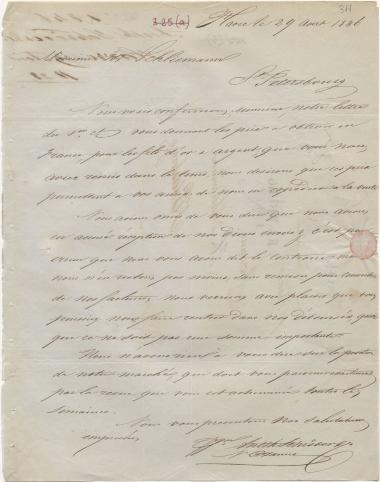 311
125 (a)
Havre le 29 Aout 1856
Monsieur Schliemann
St Petersbourg
Nous vous confirmons, Monsieur, notre lettre
du 1er ct vous donnant les prix à obtenir en
France pour les fils d'or & argent que vous nous
aviez remis dans le tems, nous désirons que ces prix
permettent à vos amis de nous en expédier à la vente
Nous avions omis de vous dire que nous avions
en accusé réception de nos envoys & c'est par
erreur que nous vous avons dit le contraire
nous n'en restons pas moins
de nos factures, nous verrons avec plaisir que vous
puissiez nous faire rentrer dans nos déboursés quoi
que ce ne soit pas une somme importante
Nous n'avons rien à vous dire sur la position
de notre marché qui doit vous parvenir
par la revue que vous est acheminée toutes les
semaines.
Nous vous présentons nos salutations
empressées